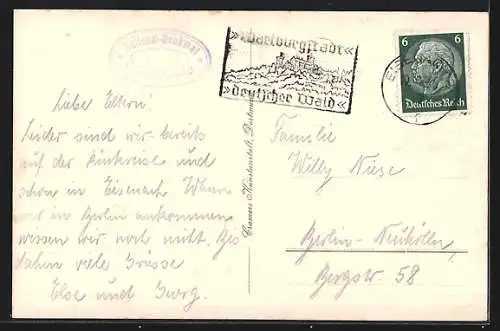 * Helleur-Denkmal *
»Wartburgstadt«
»deutscher Wald«
6
6
Deutsches Reich
Liebe Eltern!
Leider sind wir bereits
auf der Rückreise und
schon in Eisenach. Wann
wir in Berlin ankommen
wissen wir noch nicht. Bis
dahin viele Grüsse
Else und Georg.
Cramers Kunstanstalt, Dortmund
Familie
Willy Niese
Berlin-Neukölln,
Bergstr. 58